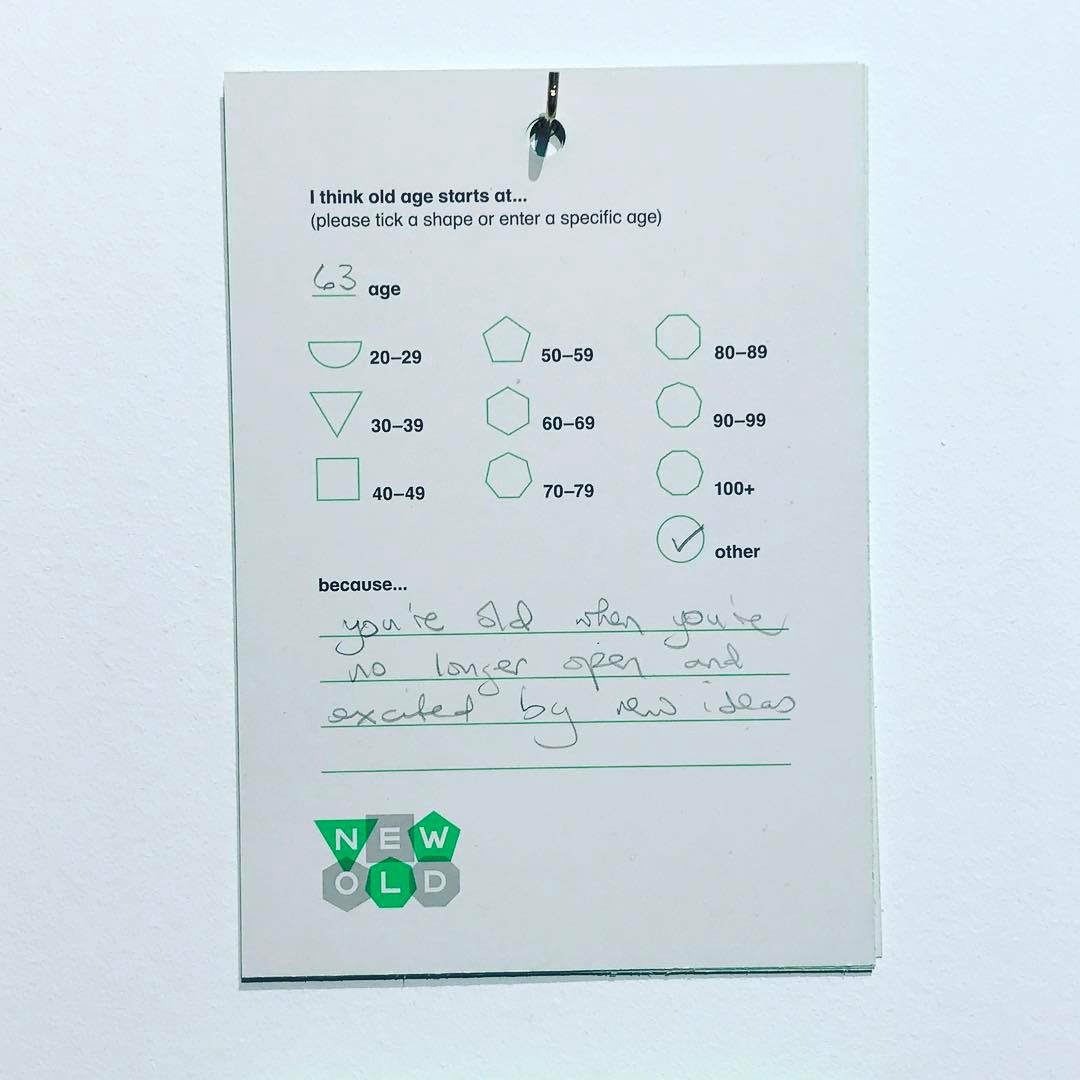 I think old age starts at...
(please tick a shape or enter a specific age)
63 age
20–29
50–59
80–89
30–39
60–69
90–99
40–49
70–79
100+
other
because...
you're old when you're
no longer open and
excited by new ideas
NEW
OLD